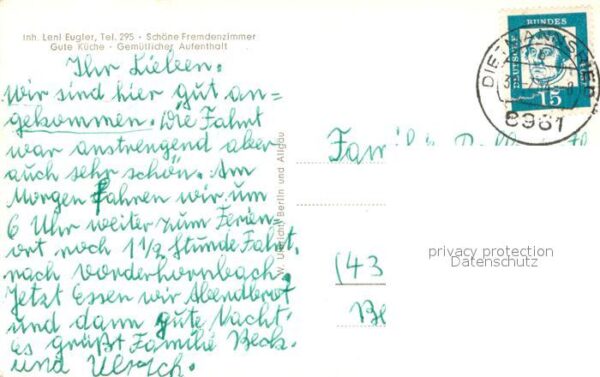 Inh. Leni Eugler, Tel. 295 - Schöne Fremdenzimmer
Gute Küche - Gemütlicher Aufenthalt
Ihr Lieben.
Wir sind hier gut an=
gekommen. Die Fahrt
war anstrengend aber
auch sehr schön. Am
Morgen fahren wir um
6 Uhr weiter zum Ferien
ort noch 1 1/2 Stunde Fahrt,
nach Vorderhornbach.
Jetzt Essen wir Abendbrot
und dann gute Nacht
Es grüßt Familie Beck.
und Ulrich.
Berlin und Allgäu
DEUTSCHE BUNDESPOST
15
DIETMANNSRIED
8961
Famil
(43
Be
privacy protection
Datenschutz